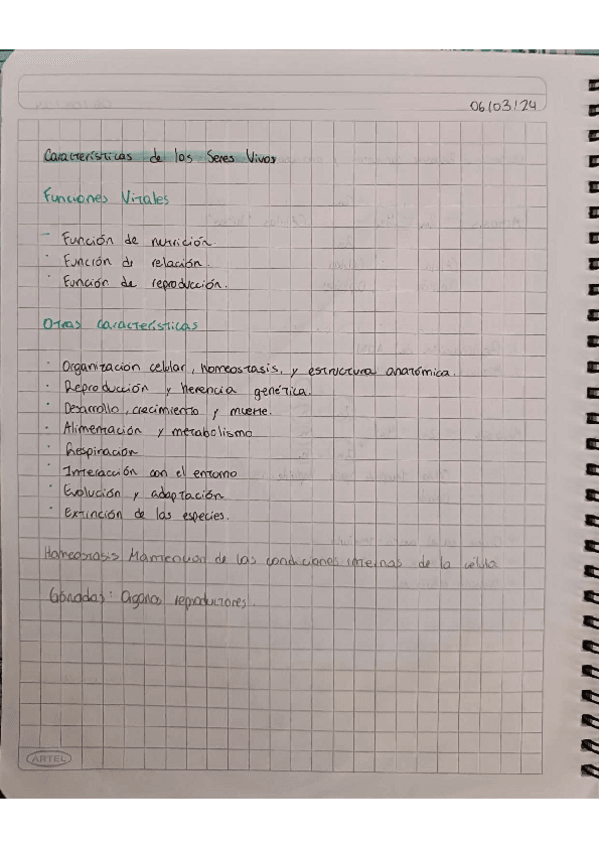 06/03/24
Características de los Seres Vivos
Funciones Vitales
- Función de nutrición.
· Función de relación.
· Función de reproducción.
Otras características
· Organización celular, homeostasis, y estructura anatómica.
· Reproducción y herencia genética.
· Desarrollo, crecimiento y muerte.
· Alimentación y metabolismo
· Respiración
· Interacción con el entorno
· Evolución y adaptación
· Extinción de las especies.
Homeostasis Mantención de las condiciones internas de la célula
Gónadas: Organos reproductores.
ARTEL